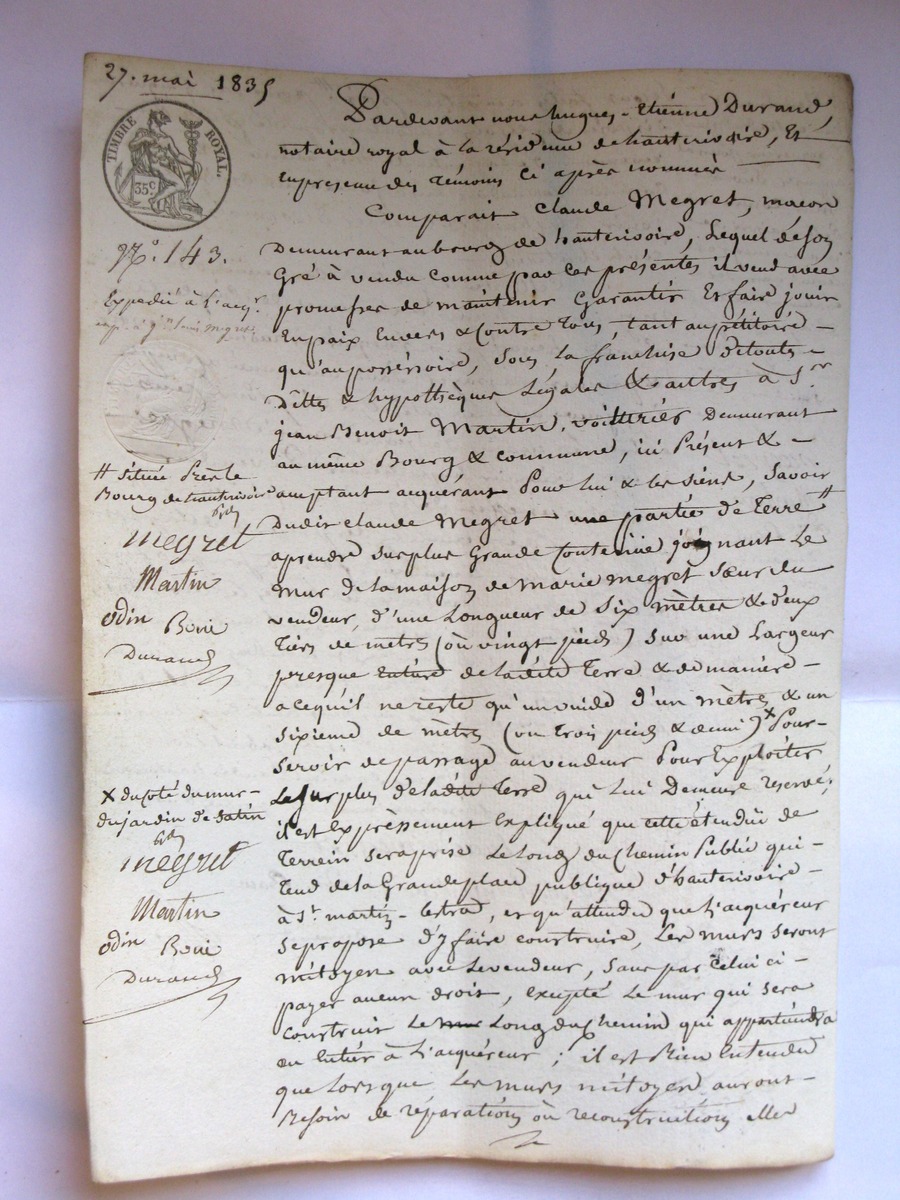 27. mai 1835
TIMBRE ROYAL.
35 C.
N.° 143.
Expedié à l'acq.r
Pardevant nous hugues-Etiénne Durand,
notaire royal à la résidence de hauterivoire, Et
en presence des témoins ci après nommés
Comparait Claude Megret, macon
Demeurant au bourg de hauterivoire, Lequel de son
Gré à vendu comme par ces présentes il vend avec
promesses de maintenir Garantir Et faire jouir
En paix Envers & Contre Tous, tant au pétitoire –
qu'au possessoire, sous la franchise de toutes –
Dettes & hypothèques Légales & autres à S.r
jean Benoit Martin, voiturier Demeurant
au même Bourg & commune, ici Présent & –
acceptant acquérant Pour lui & les siens, savoir
Dudit Claude Megret une partie de Terre #
aprendre sur plus Grande Contenue joignant Le
mur de la maison de marie megret sœur du
vendeur, d'une Longueur de six mètres & deux
Tiers de metre (ou vingt pieds) sur une Largeur
presque entière de la dite Terre & de manière –
a ce qu'il ne reste qu'un vuide d'un mètre & un
sixieme de mètre (ou Trois pieds & demi) x Pour –
servir de passage au vendeur Pour Exploiter
Le surplus de la dite Terre qui Lui Demeure reservé;
il est Expressement Expliqué que cette étendue de
Terrein sera prise Le Long du Chemin Public qui –
Tend de la Grande place publique d'hauterivoire –
à S.t martin-lestra, et qu'attendu que l'acquéreur
se propose d'y faire construire, Les murs seront
mitoyen avec Le vendeur, sans par Celui ci –
payer aucun droit, excepté Le mur qui sera
construit Le Long du Chemin qui appartiendra
en Entier à l'acquéreur; il est Bien Entendu
que Lorsque Les murs mitoyen auront –
Besoin de réparations ou reconstructions elles
# située Près le
Bourg de hauterivoire
megret
Martin
odin Boni
Durand
x du coté du mur –
du jardin de
megret
Martin
odin Boni
Durand